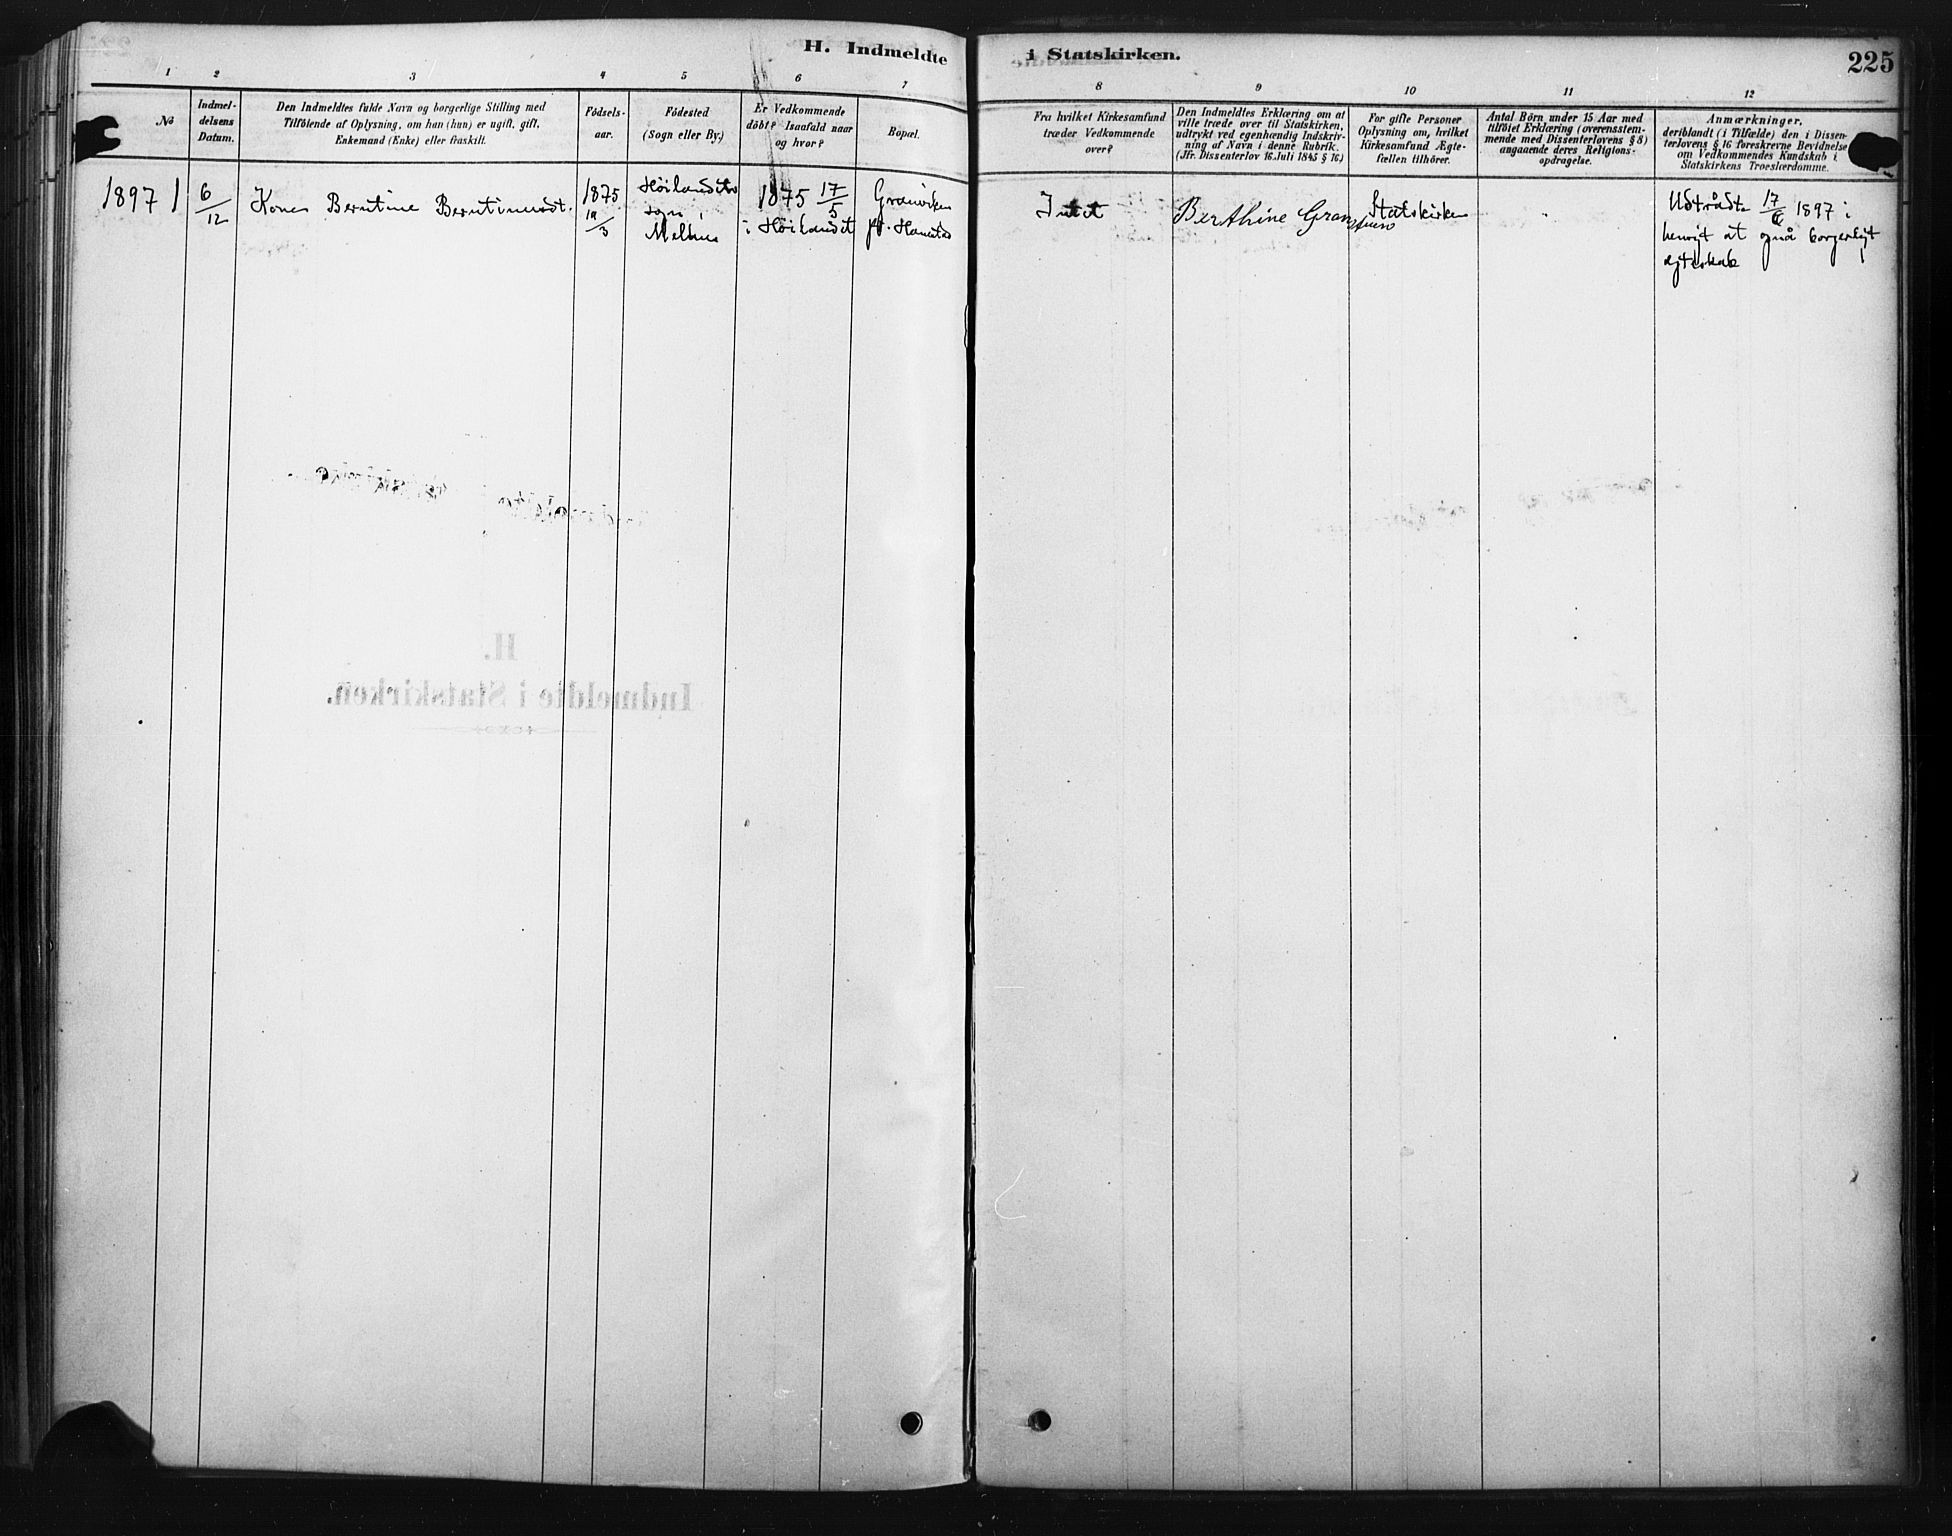 H. Indmeldte i Statskirken.
225
1 2 3 4 5 6 7 8 9 10 11 12
No
Indmel-
delsens
Datum.
Den Indmeldtes fulde Navn og borgerlige Stilling med
Tilföiende af Oplysning, om han (hun) er ugift, gift,
Enkemand (Enke) eller fraskilt.
Födsels-
aar.
Födested
(Sogn eller By.)
Er Vedkommende
döbt? Isaafald naar
og hvor?
Bopæl.
Fra hvilket Kirkesamfund
træder Vedkommende
over?
Den Indmeldtes Erklæring om at
ville træde over til Statskirken,
udtrykt ved egenhændig Indskriv-
ning af Navn i denne Rubrik.
(Jfr. Dissenterlov 16. Juli 1845 § 16)
For gifte Personer
Oplysning om, hvilket
Kirkesamfund Ægte-
fællen tilhörer.
Antal Börn under 15 Aar med
tilföiet Erklæring (overensstem-
mende med Dissenterlovens § 8)
angaaende deres Religions-
opdragelse.
Anmærkninger,
deriblandt (i Tilfælde) den i Dissen-
terlovens § 16 foreskrevne Bevidnelse
om Vedkommendes Kundskab i
Statskirkens Troeslærdomme.
1897 1
6/12
Kone Berntine Berntinusdt.
1875
19/3
Höilandets
sogn i
Melhus
1875 17/5
i Höilandet
Granviken
pt.
Intet
Berthine Gran
Statskirken
Udtrådte 17/6 1897 i
hensigt at opnå borgerligt
ægteskab
H.
Indmeldte i Statskirken.